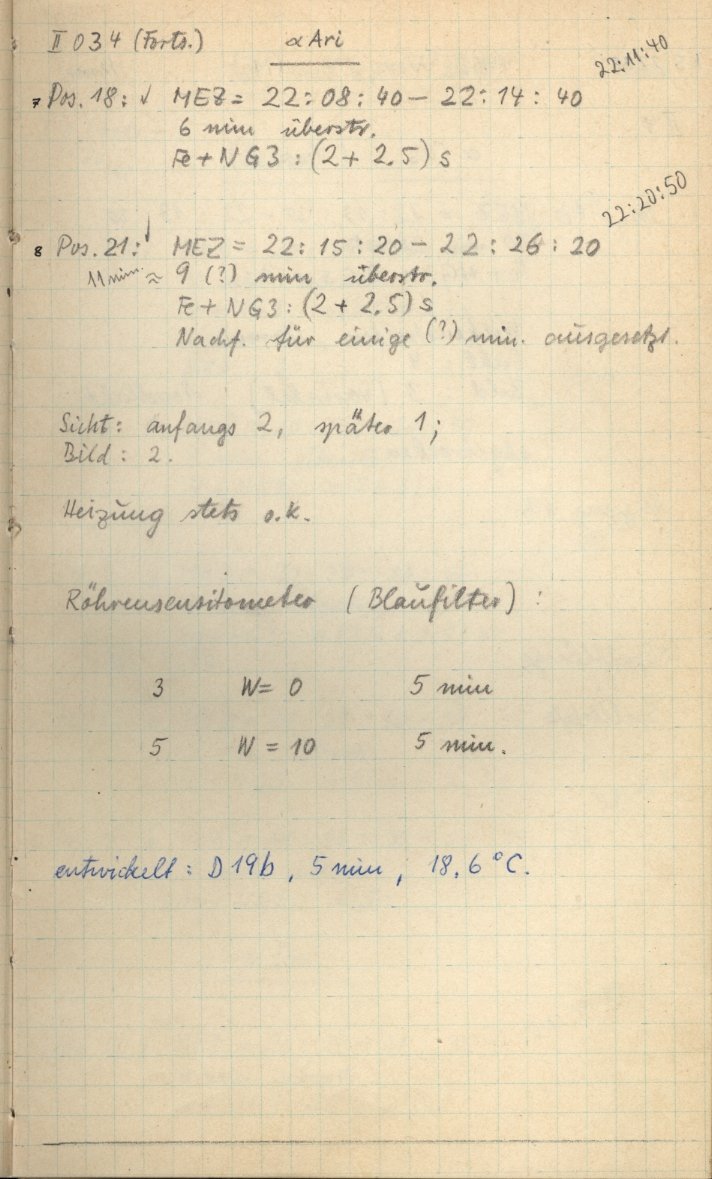 II 034 (Forts.) α Ari
22:11:40
7 Pos. 18: ↓ MEZ = 22:08:40 – 22:14:40
6 min überstr.
Fe + NG3 : (2 + 2.5) s
22:20:50
8 Pos. 21: ↓ MEZ = 22:15:20 – 22:26:20
11 min ≈ 9 (?) min überstr.
Fe + NG3 : (2 + 2.5) s
Nachf. für einige (?) min. ausgesetzt.
Sicht: anfangs 2, später 1;
Bild: 2.
Heizung stets o.k.
Röhrensensitometer (Blaufilter):
3 W = 0 5 min
5 W = 10 5 min.
entwickelt: D 19b, 5 min, 18,6 °C.